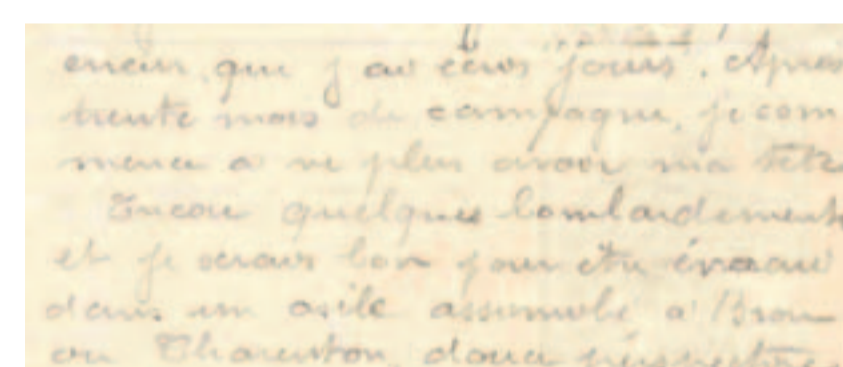 erreur, que j'ai écris jours. Après
trente mois de campagne, je com
mence a ne plus avoir ma tete
Encore quelques bombardements
et je serais bon pour etre évacué
dans un asile à Bron
ou Charenton, douce perspective,